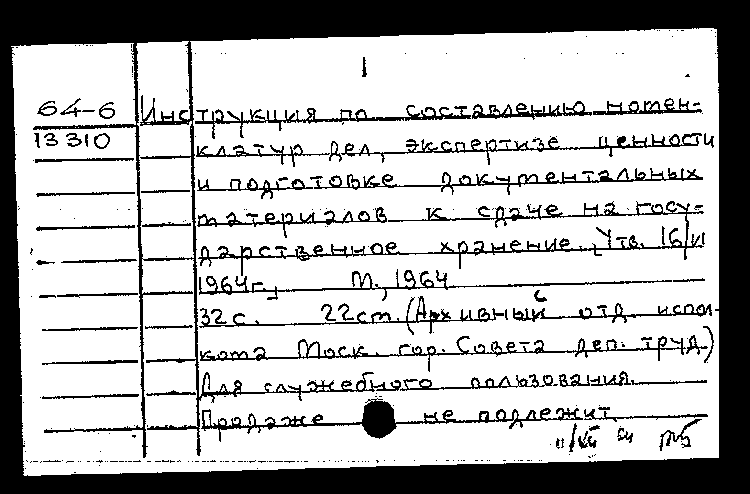 64-6 Инструкция по составлению номен-
13 310 клатур дел, экспертизе ценности
и подготовке документальных
материалов к сдаче на госу-
дарственное хранение. Утв. 16/VI
1964г. М., 1964
32с. 22см. (Архивный отд. испол-
кома Моск. гор. Совета деп. труд.)
Для служебного пользования.
Продаже не подлежит